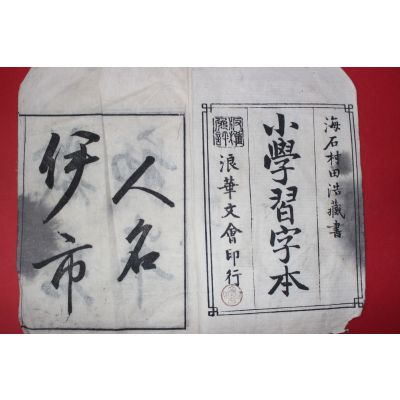 海石村田浩藏書
小學習字本
浪華文會印行
人名
伊市